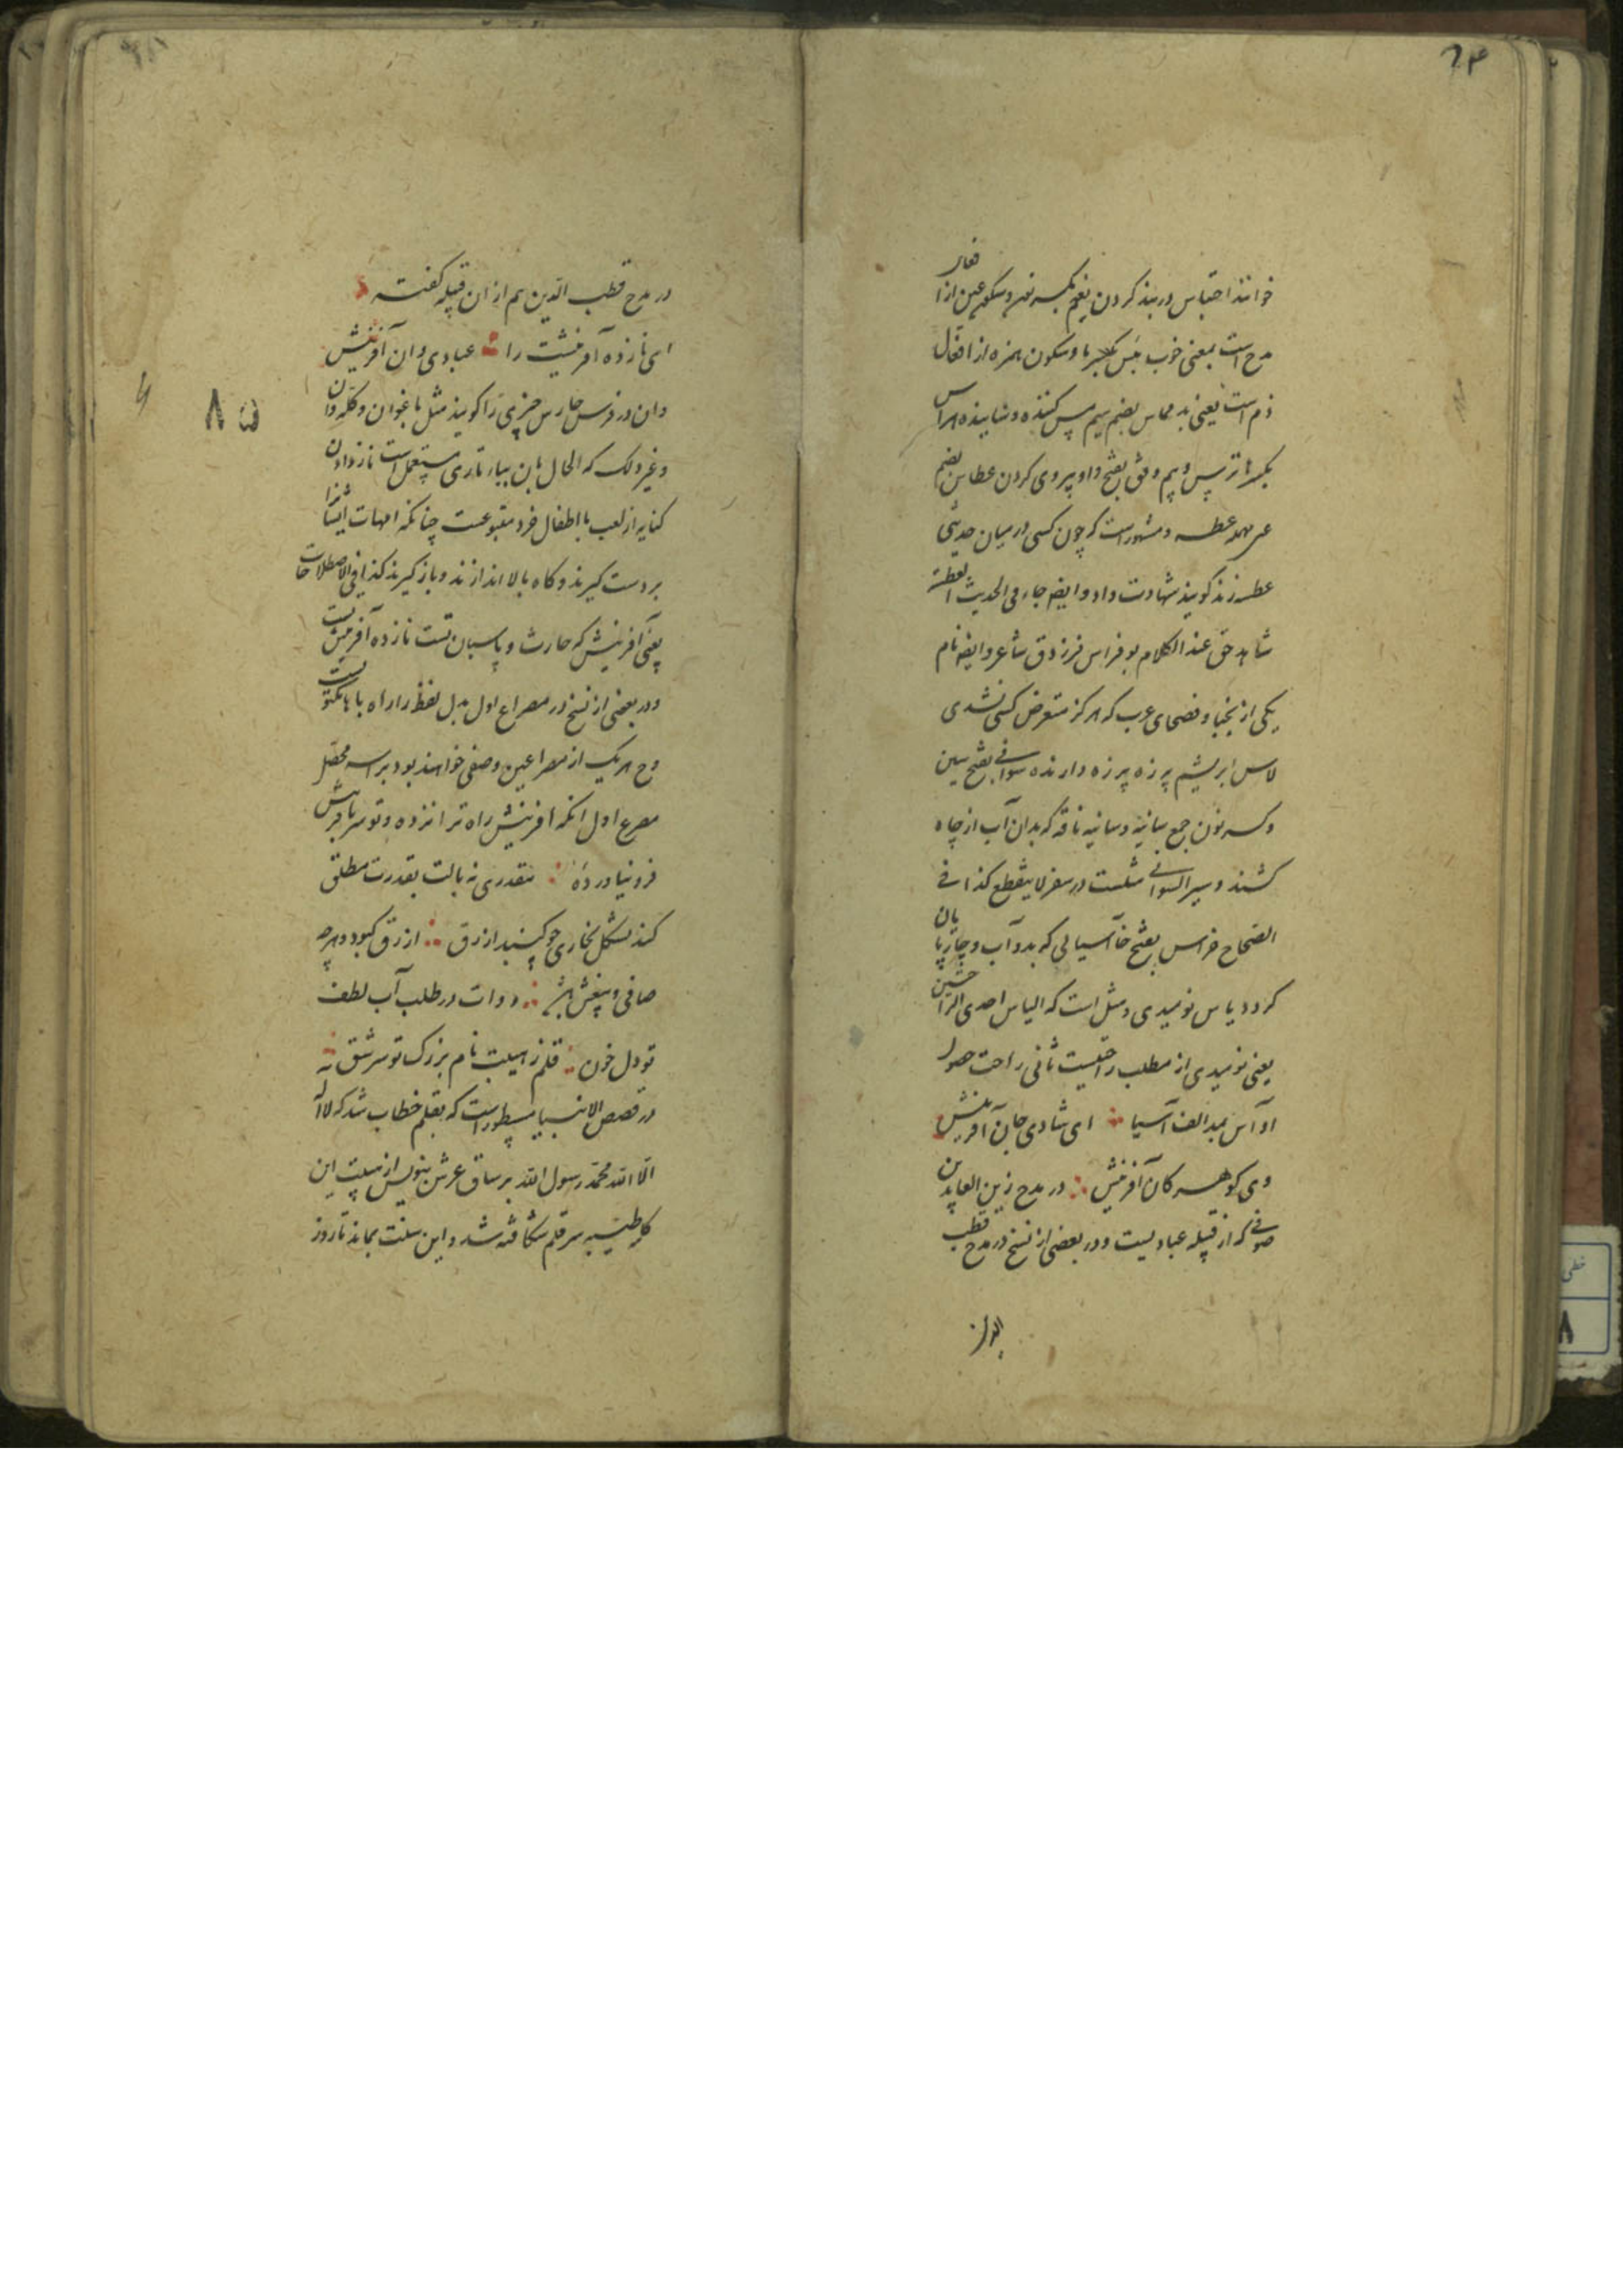 ۶۴
خوانند احتباس دربند کردن نعم بکسر نون و سکون عین از افعال
مدح است بمعنی خوب بئس بکسر با و سکون همزه از افعال
ذم است یعنی بد مماس بضم میم مس کننده و ساینده هراس
بکسر ها ترس و بیم وفق بفتح واو پیروی کردن عطاس بضم
عین مهمله عطسه و مشهور است که چون کسی در میان حدیثی
عطسه زند گویند شهادت داد و ایضا جاء فی الحدیث العطسة
شاهد حق عند الکلام بو فراس فرزدق شاعر و ایضا نام
یکی از نجبا و فصحای عرب که هرگز متعرض کسی نشدی
لاس ابریشم پرزه پرزه دارنده سوانی بفتح سین
و کسر نون جمع سانیه و سانیه ناقه که بدان آب از چاه
کشند و سیر السوانی مثلست در سفر لا ینقطع کذا فی
الصحاح خراس بفتح خا آسیایی که بدو آب و چارپایان
گردد یاس نومیدی و مثل است که الیاس احدی الراحتین
یعنی نومیدی از مطلب راحتیست ثانی راحت حصول
او آس بمد الف آسیا ای شادی جان آفرینش
وی گوهر کان آفرینش در مدح زین العابدین
صوفی که از قبیله عبادیست و در بعضی از نسخ در مدح قطب
الدین
در مدح قطب الدین هم ازان قبیله گفته
ای نازده آفرینشت را عبادی وان آفرینش
وان در فرس حارس چیزی را گویند مثل باغوان و کله وان
و غیر ذلک که الحال بان بباء تازی مستعمل است ناز دادن
کنایه از لعب با اطفال خرد متبوعست چنانکه امهات ایشانرا
بردست گیرند و گاه بالا اندازند و باز گیرند کذا فی الاصطلاحات
یعنی آفرینش که حارث و پاسبان تست نازده آفرینشست
و در بعضی از نسخ در مصراع اول بدل لفظ را راه با ها مکتوبست
وح هر یک از مصراعین وصفی خواهند بود براسه محصل
مصرع اول انکه افرینش راه ترا نزده و تو سر بافرینش
فرو نیاورده مقدری نه بالت بقدرت مطلق
کند بشکل بخاری چو گنبد ازرق ازرق کبود و هرچه
صافی و بیغش باشد دوات در طلب آب لطف
تو دل خون قلم ز هیبت نام بزرگ تو سر شق
در قصص الانبیا مسطور است که بقلم خطاب شد که لا اله
الا الله محمد رسول الله بر ساق عرش بنویس از هیبت این
کلمه طیبه سر قلم شکافته شد و این سنت بماند تا روز
۸۵
خطی
۸